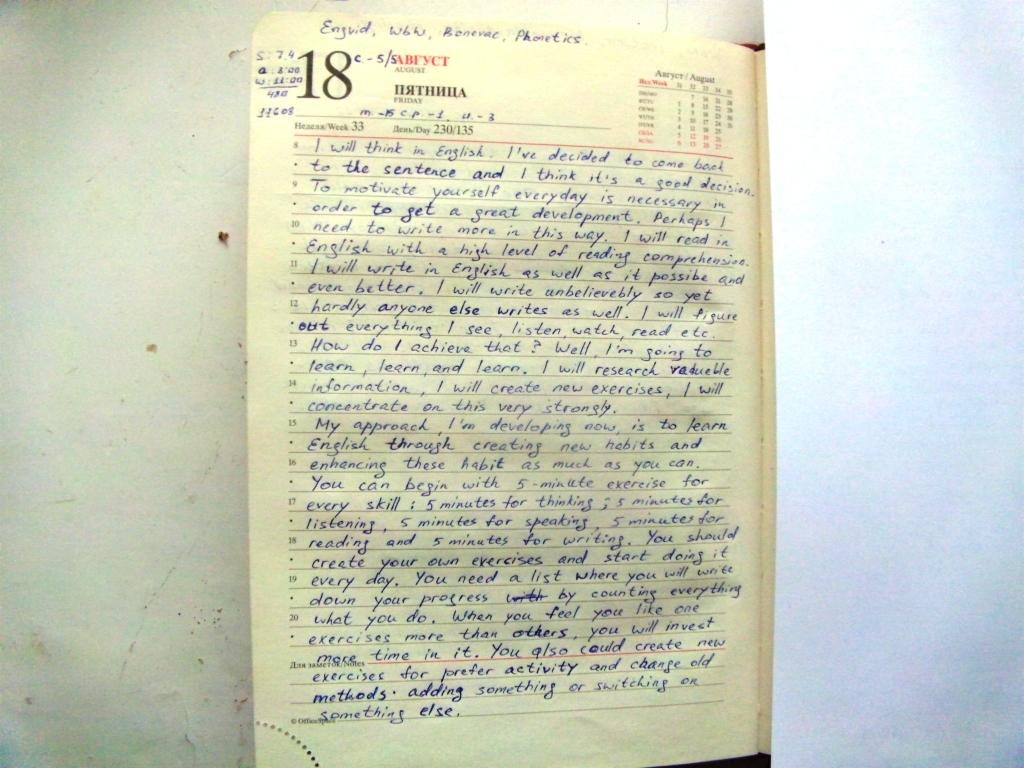 Engvid, WbW, Bonevac, Phonetics.
S: 7.4
a: 8:00
w: 11:00
480
18 c. - 5/5 АВГУСТ
AUGUST
ПЯТНИЦА
FRIDAY
m. -15 c.p. -1, u. -3
Неделя/Week 33 День/Day 230/135
Август / August
8 I will think in English. I've decided to come back
to the sentence and I think it's a good decision.
9 To motivate yourself everyday is necessary in
order to get a great development. Perhaps I
10 need to write more in this way. I will read in
English with a high level of reading comprehension.
11 I will write in English as well as it possibe and
even better. I will write unbelievebly so yet
12 hardly anyone else writes as well. I will figure
out everything I see, listen, watch, read etc.
13 How do I achieve that? Well, I'm going to
learn, learn, and learn. I will research valueble
14 information, I will create new exercises, I will
concentrate on this very strongly.
15 My approach, I'm developing now, is to learn
English through creating new habits and
16 enhancing these habit as much as you can.
You can begin with 5-minute exercise for
17 every skill: 5 minutes for thinking; 5 minutes for
listening, 5 minutes for speaking, 5 minutes for
18 reading and 5 minutes for writing. You should
create your own exercises and start doing it
19 every day. You need a list where you will write
down your progress with by counting everything
20 what you do. When you feel you like one
exercises more than others, you will invest
Для заметок/Notes more time in it. You also could create new
exercises for prefer activity and change old
methods. adding something or switching on
something else.
© OfficeSpace